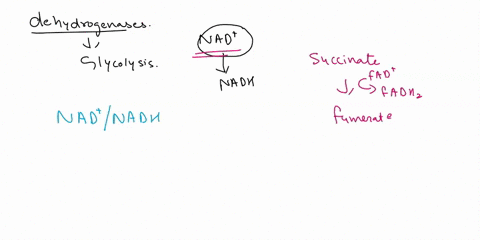 dehydrogenases.
Glycolysis.
NAD⁺
NADH
NAD⁺/NADH
Succinate
fAD⁺
fADH₂
fumerate